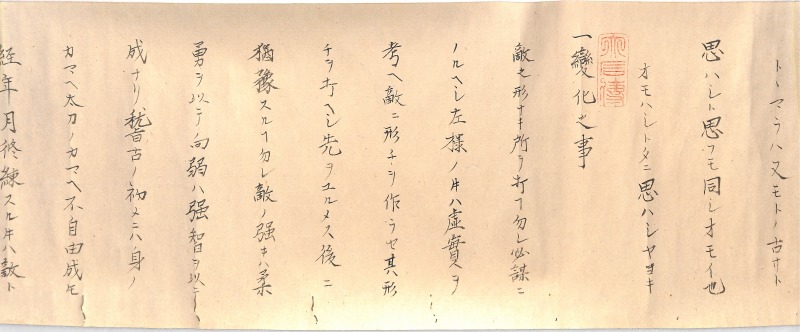 トヽマラハ又モトノ古サト
思ハシト思フモ同シオモイ也
オモハシトタニ思ハシヤヨキ
一變化之事
敵之形ナキ所ヲ打ヿ勿レ必謀ニ
ノルヘシ左様ノ片ハ虚實ヲ
考ヘ敵ニ形チヲ作ラセ其形
チヲ打ヘシ先ヲユルメス後ニ
猶豫スルヿ勿レ敵ノ強キハ柔
勇ヲ以テシ向弱ハ强智ヲ以テシ
成ナリ稽古ノ初メニハ身ノ
カマヘ太刀ノカマヘ不自由成モ
経年月修練スル片ハ敵ト